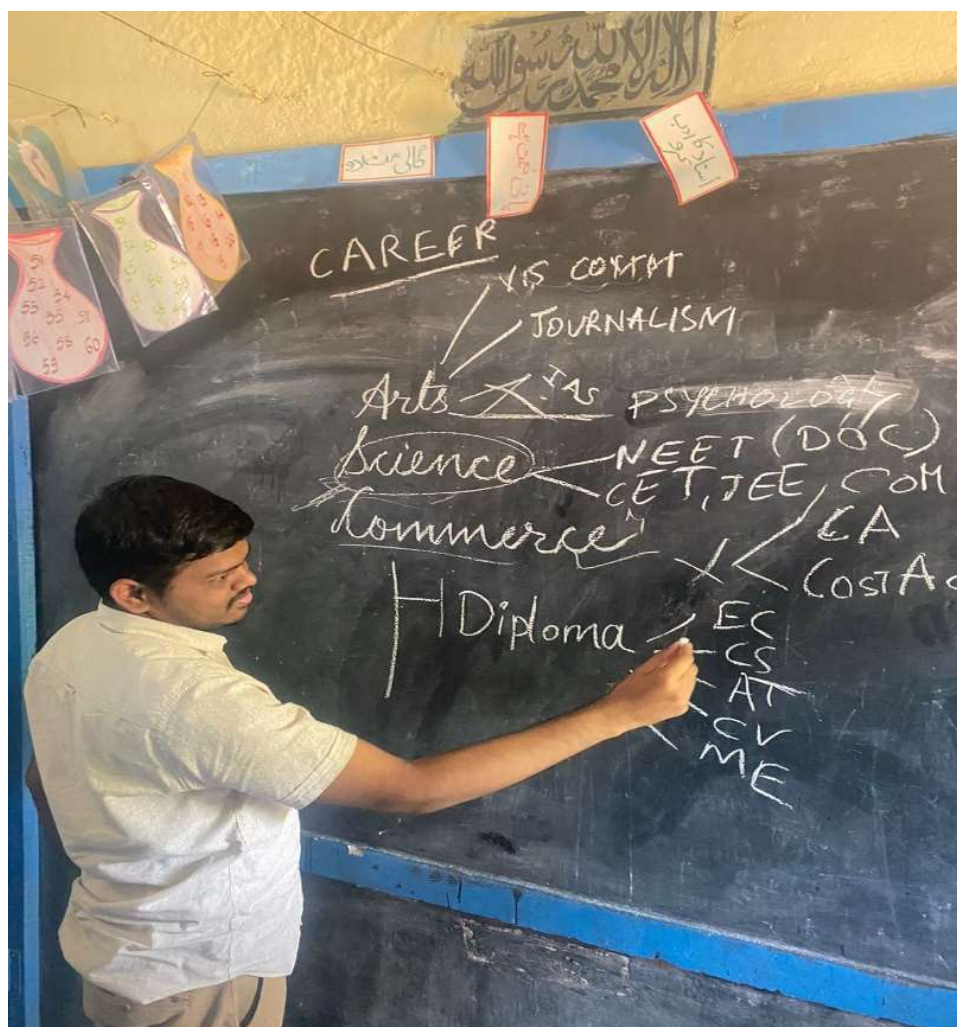 لا اله الا الله محمد رسول الله
گالی مت دو
استاد کا ادب کرو
51
52 54
53 55 57
56 58 60
59
CAREER
VIS COMM
JOURNALISM
Arts IAS PSYCHOLOGY
Science NEET (DOC)
CET, JEE, COM
Commerce CA
COST AC
Diploma EC
CS
AT
CV
ME